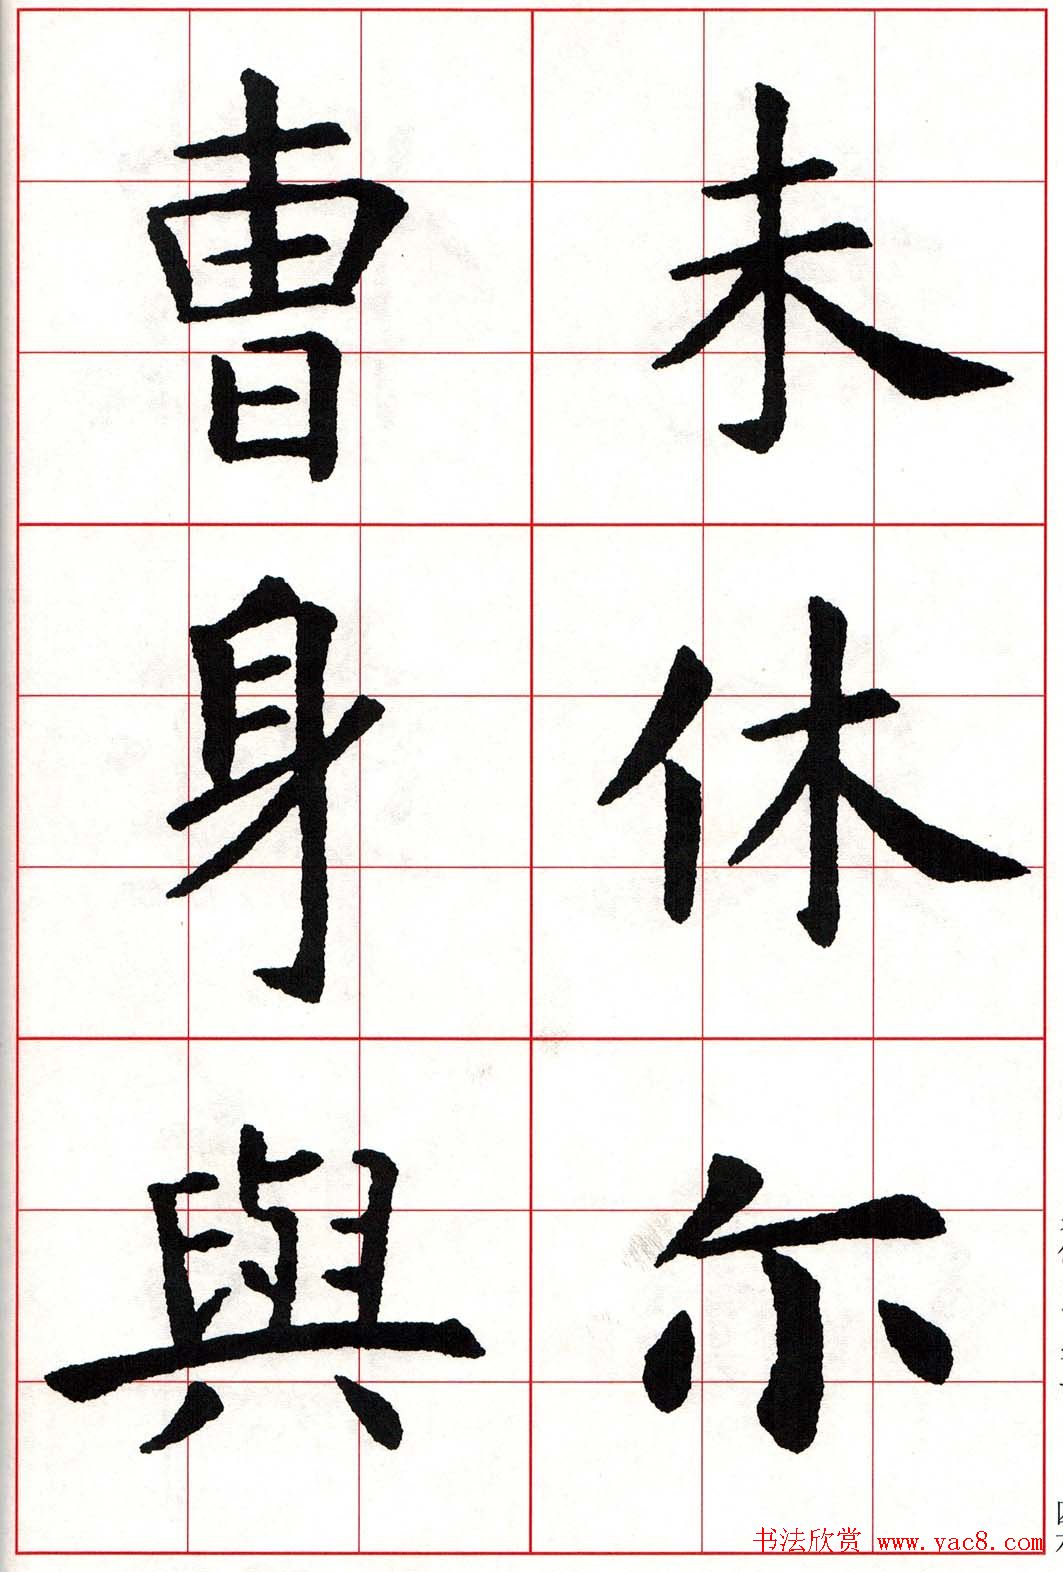 未休尔
曹身與
书法欣赏 www.yac8.com